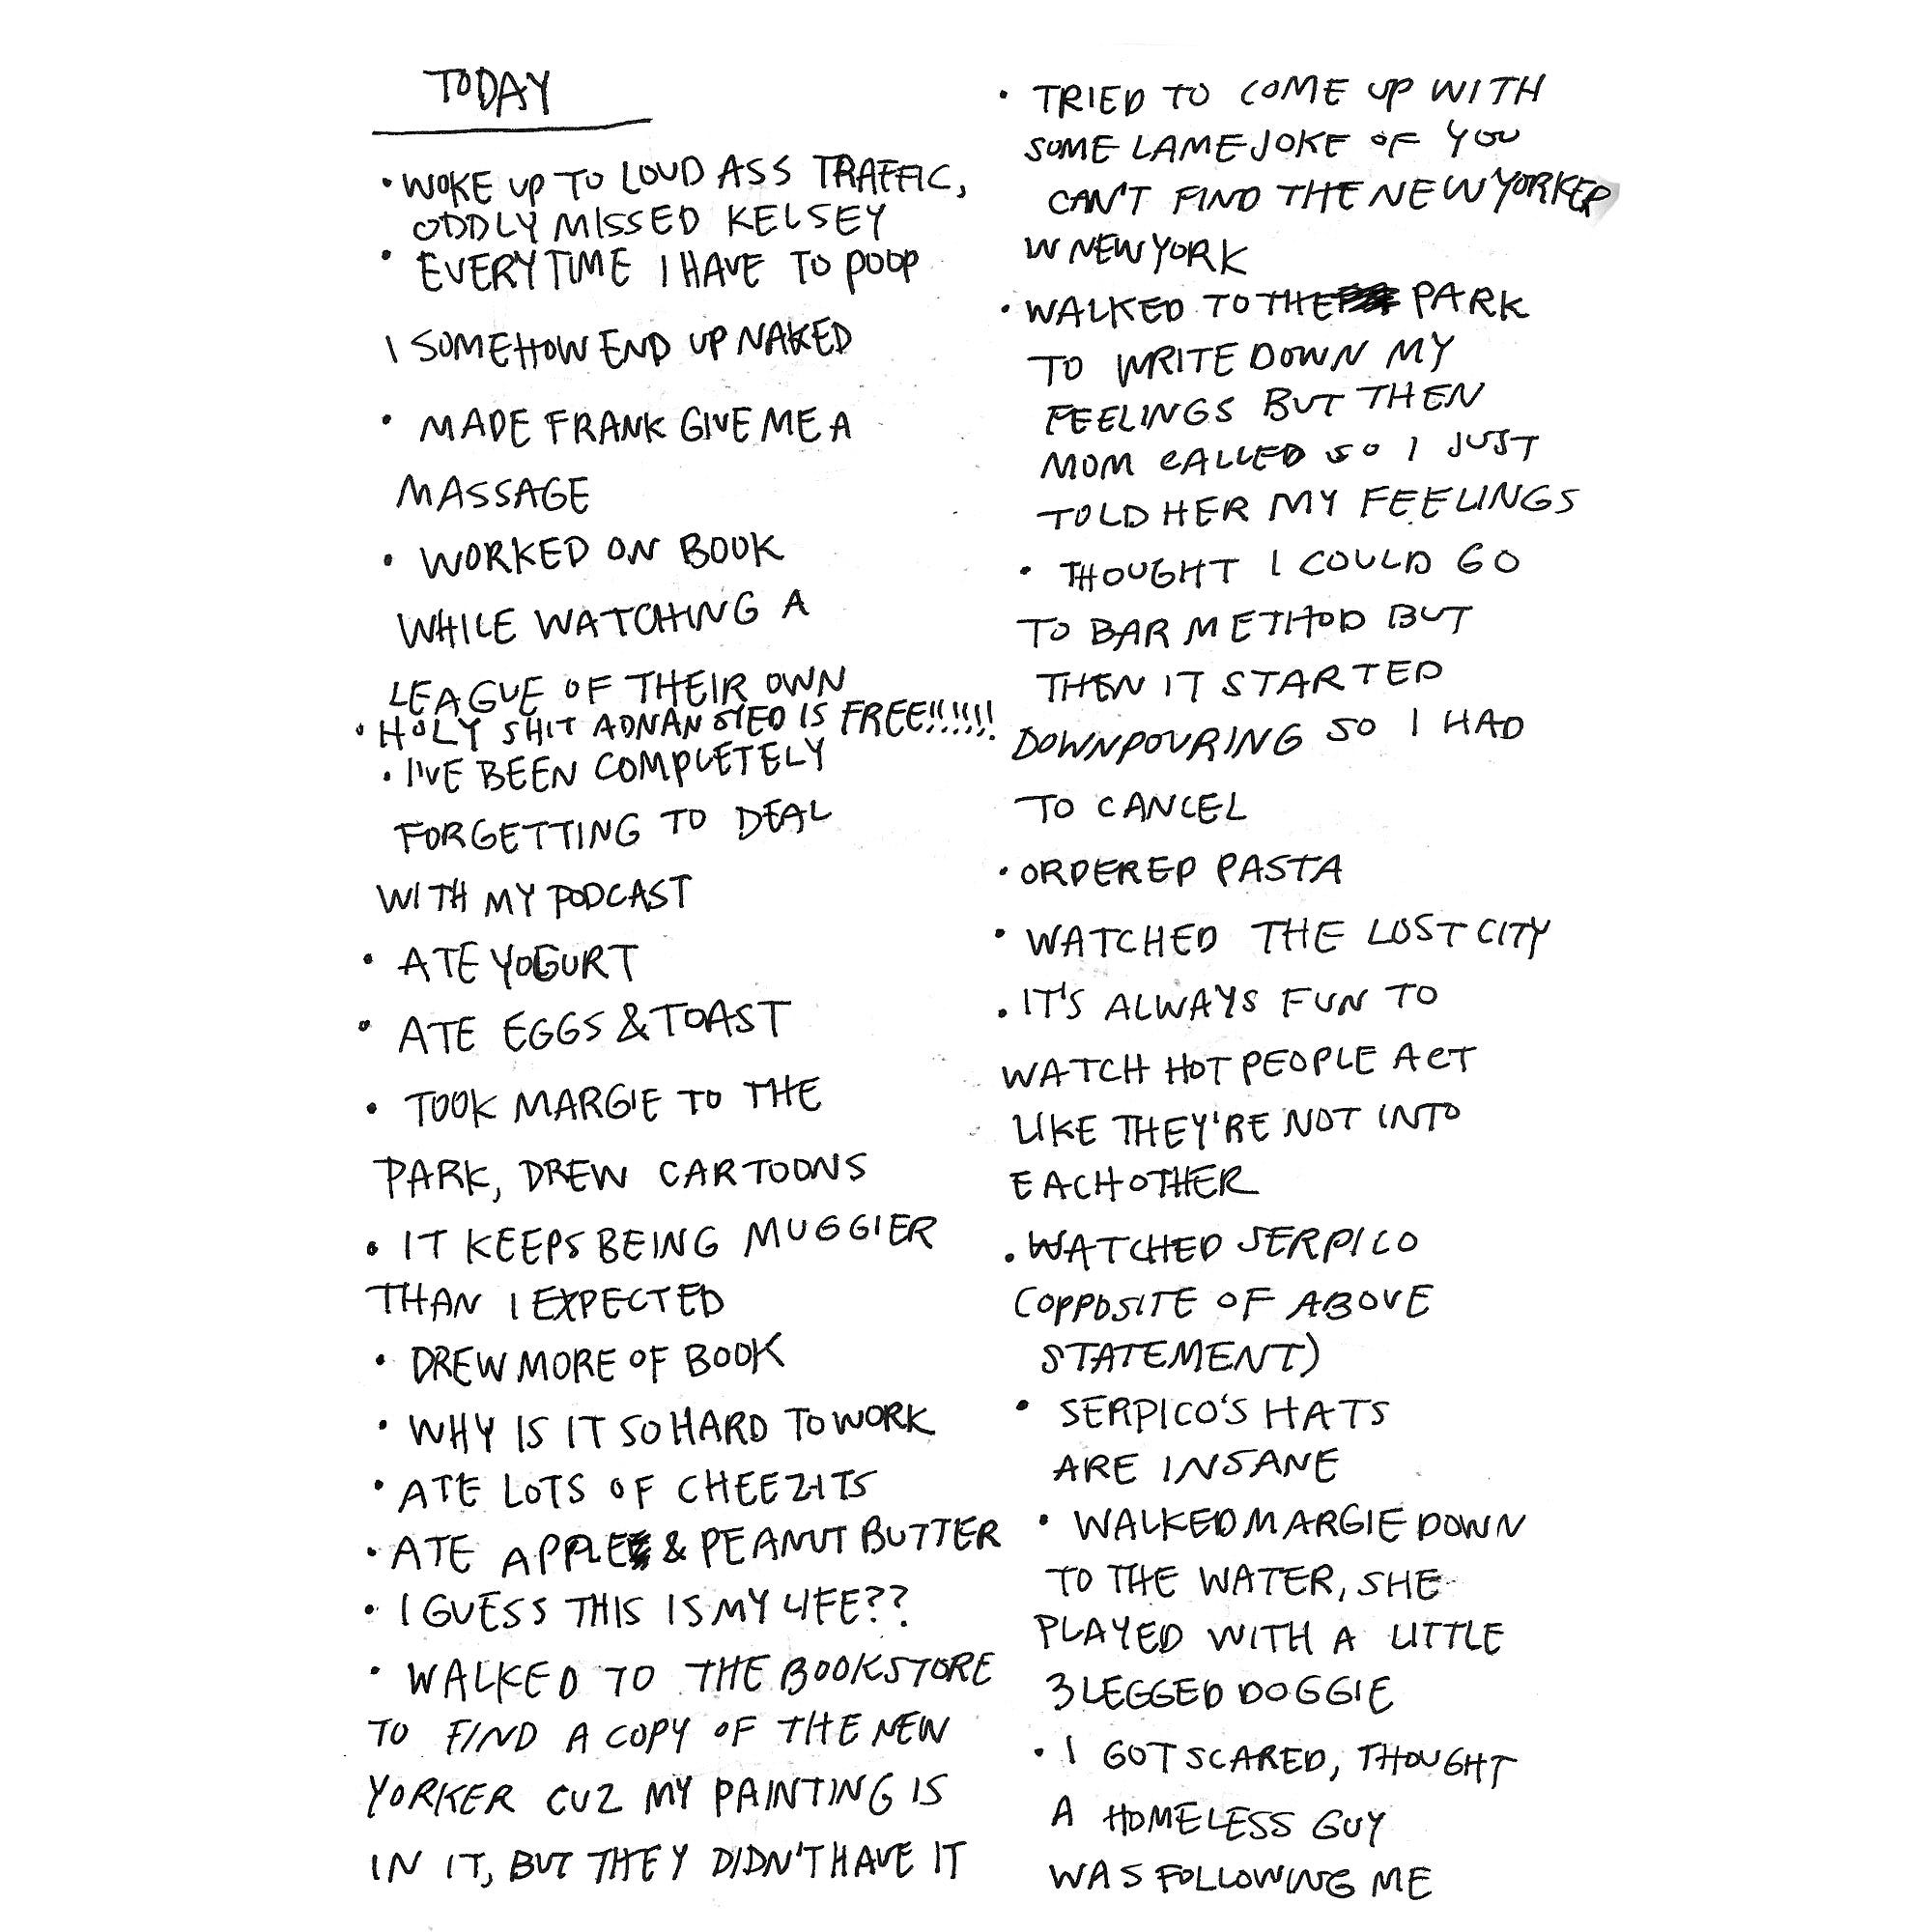 TODAY
• WOKE UP TO LOUD ASS TRAFFIC,
ODDLY MISSED KELSEY
• EVERYTIME I HAVE TO POOP
I SOMEHOW END UP NAKED
• MADE FRANK GIVE ME A
MASSAGE
• WORKED ON BOOK
WHILE WATCHING A
LEAGUE OF THEIR OWN
• HOLY SHIT ADNAN SYED IS FREE!!!!!!
• I'VE BEEN COMPLETELY
FORGETTING TO DEAL
WITH MY PODCAST
• ATE YOGURT
• ATE EGGS & TOAST
• TOOK MARGIE TO THE
PARK, DREW CARTOONS
• IT KEEPS BEING MUGGIER
THAN I EXPECTED
• DREW MORE OF BOOK
• WHY IS IT SO HARD TO WORK
• ATE LOTS OF CHEEZ-ITS
• ATE APPLE & PEANUT BUTTER
• I GUESS THIS IS MY LIFE??
• WALKED TO THE BOOKSTORE
TO FIND A COPY OF THE NEW
YORKER CUZ MY PAINTING IS
IN IT, BUT THEY DIDN'T HAVE IT
• TRIED TO COME UP WITH
SOME LAME JOKE OF YOU
CAN'T FIND THE NEW YORKER
IN NEW YORK
• WALKED TO THE PARK
TO WRITE DOWN MY
FEELINGS BUT THEN
MOM CALLED SO I JUST
TOLD HER MY FEELINGS
• THOUGHT I COULD GO
TO BAR METHOD BUT
THEN IT STARTED
DOWNPOURING SO I HAD
TO CANCEL
• ORDERED PASTA
• WATCHED THE LOST CITY
• IT'S ALWAYS FUN TO
WATCH HOT PEOPLE ACT
LIKE THEY'RE NOT INTO
EACHOTHER
• WATCHED SERPICO
(OPPOSITE OF ABOVE
STATEMENT)
• SERPICO'S HATS
ARE INSANE
• WALKED MARGIE DOWN
TO THE WATER, SHE
PLAYED WITH A LITTLE
3 LEGGED DOGGIE
• I GOT SCARED, THOUGHT
A HOMELESS GUY
WAS FOLLOWING ME